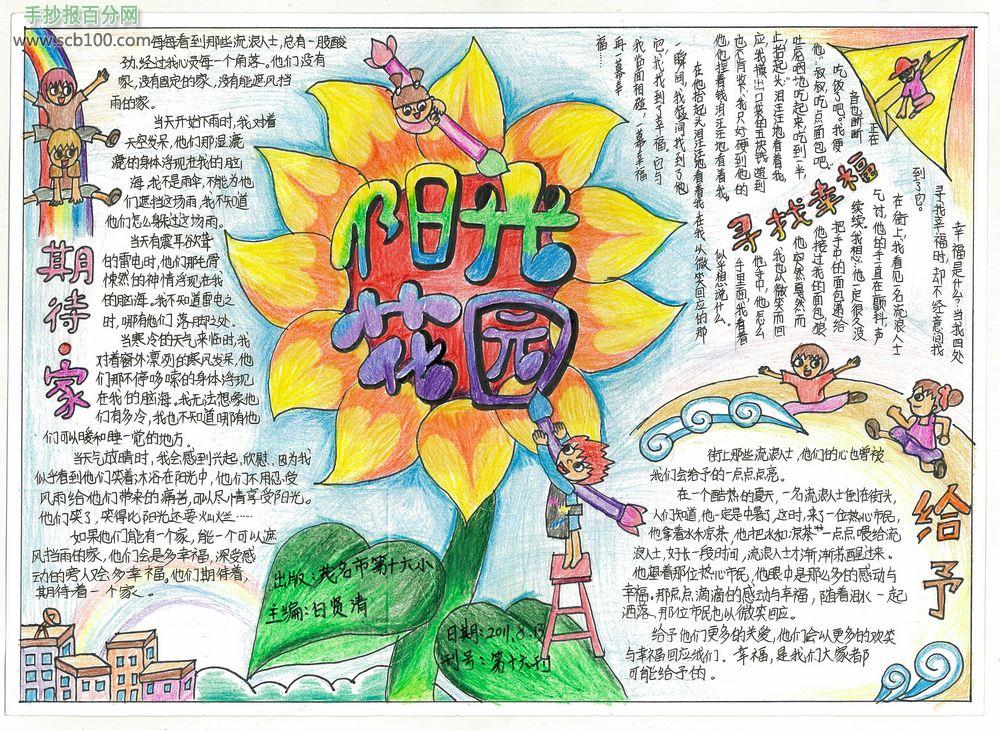 手抄报百分网
www.scb100.com
每每看到那些流浪人士,总有一股酸
劲,经过我心灵每一个角落。他们没有
家,没有固定的家,没有能遮风挡
雨的家。
当天开始下雨时,我对着
天空发呆,他们那湿漉
漉的身体浮现在我的脑
海,我不是雨伞,不能为他
们遮挡这场雨,我不知道
他们怎么躲过这场雨。
当天有震耳欲聋
的雷电时,他们那毛骨
悚然的神情浮现在我
的脑海。我不知道雷电之
时,哪有他们落脚之处。
当寒冷的天气来临时,我
对着窗外凛冽的寒风发呆,他
们那不停哆嗦的身体浮现
在我的脑海。我无法想象他
们有多冷,我也不知道哪有他
们可以暖和睡一觉的地方。
当天气放晴时,我会感到兴起,欣慰。因为我
似乎看到他们笑着沐浴在阳光中,他们不用忍受
风雨给他们带来的痛苦,可以尽情享受阳光。
他们笑了,笑得比阳光还要灿烂……
如果他们能有一个家,能一个可以遮
风挡雨的家,他们会是多幸福,深受感
动的旁人又会多幸福,他们期待着,
期待着一个家。
期待·家
阳光
花园
出版:茂名市第十六小
主编:白贤清
日期:2011.8.13
刊号:第十六刊
寻找幸福
幸福是什么?当我四处
寻找幸福时,却不经意间找
到了它。
在街上,我看见一名流浪人士
乞讨,他的手直在颤抖,声
音也断断
续续。我想:他一定很久没
吃饭了吧。我便
把手中的面包递给
他:“叔叔,吃点面包吧。”
他接过我的面包,狼
吐虎咽地吃起来,吃到一半,
他突然戛然而
止,抬起头泪汪汪地看着我,
我也以微笑而回
应。我摸出口袋的五块钱,递到
他手中,他怎么
也不肯收下,我只好硬到他的
手里面,我看着
他,他捏着钱,泪汪汪地看着我,
似乎想说什么。
在他抬起头泪汪汪地看着我,在我以微笑回应的那
一瞬间,我彼间我找到了他
它,我找到了幸福,它与
我们面相碰,一幕幸福
再一幕幸
福……
街上那些流浪士,他们的心也曾被
我们会给予的一点点点亮。
在一个酷热的夏天,一名流浪人士倒在街头,
人们知道,他一定是中暑了,这时,来了一位热心市民,
他拿着水和凉茶,他把水和凉茶一点点喂给流
浪人士,好长一段时间,流浪人士才渐渐苏醒过来。
他望着那位热心市民,他眼中是那么多的感动与
幸福。那点点滴滴的感动与幸福,随着泪水一起
洒落,那位市民也以微笑回应。
给予他们更多的关爱,他们会以更多的欢笑
与幸福回应我们。幸福,是我们大家都
可能给予的。
给予